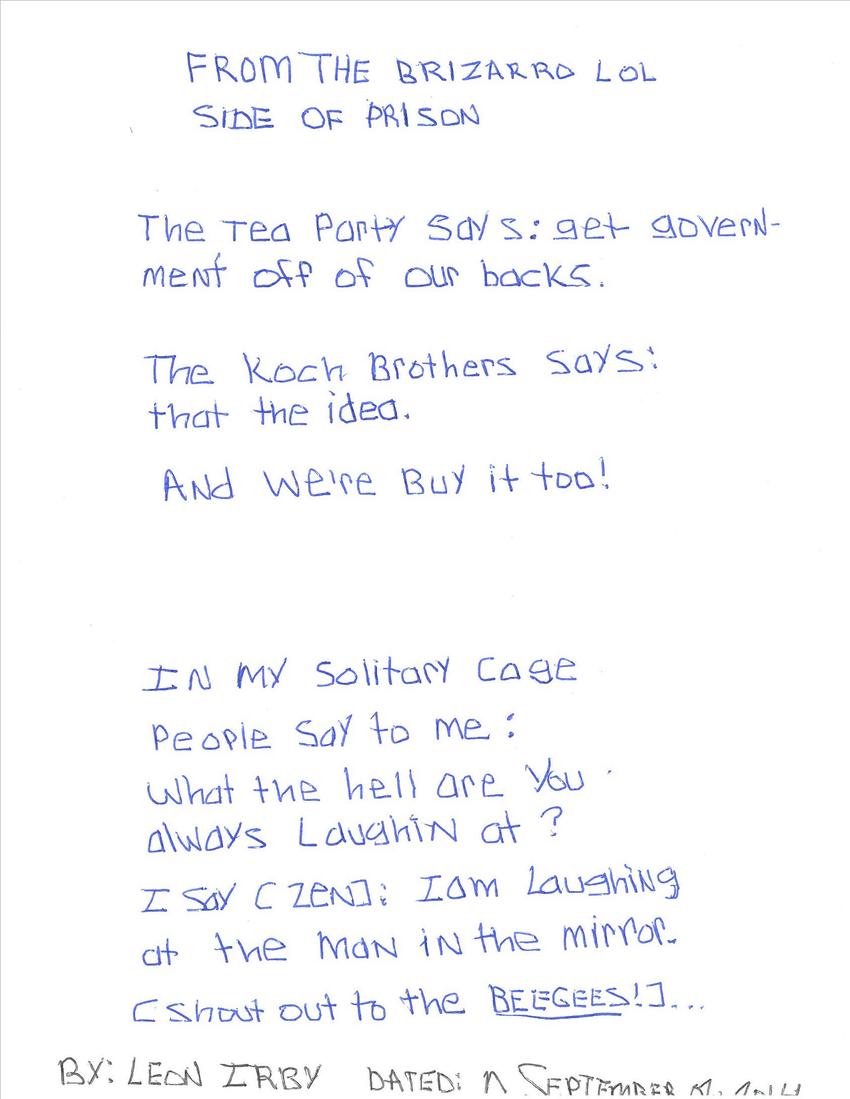 FROM THE BRIZARRO LOL
SIDE OF PRISON
The Tea Party says: get govern-
ment off of our backs.
The Koch Brothers says:
that the idea.
And we're Buy it too!
IN MY Solitary Cage
People say to me:
What the hell are you
always Laughin at?
I say [ZEN]: I am Laughing
at the man in the mirror.
[shout out to the BEEGEES!]...
BY: LEON IRBY DATED: SEPTEMBER